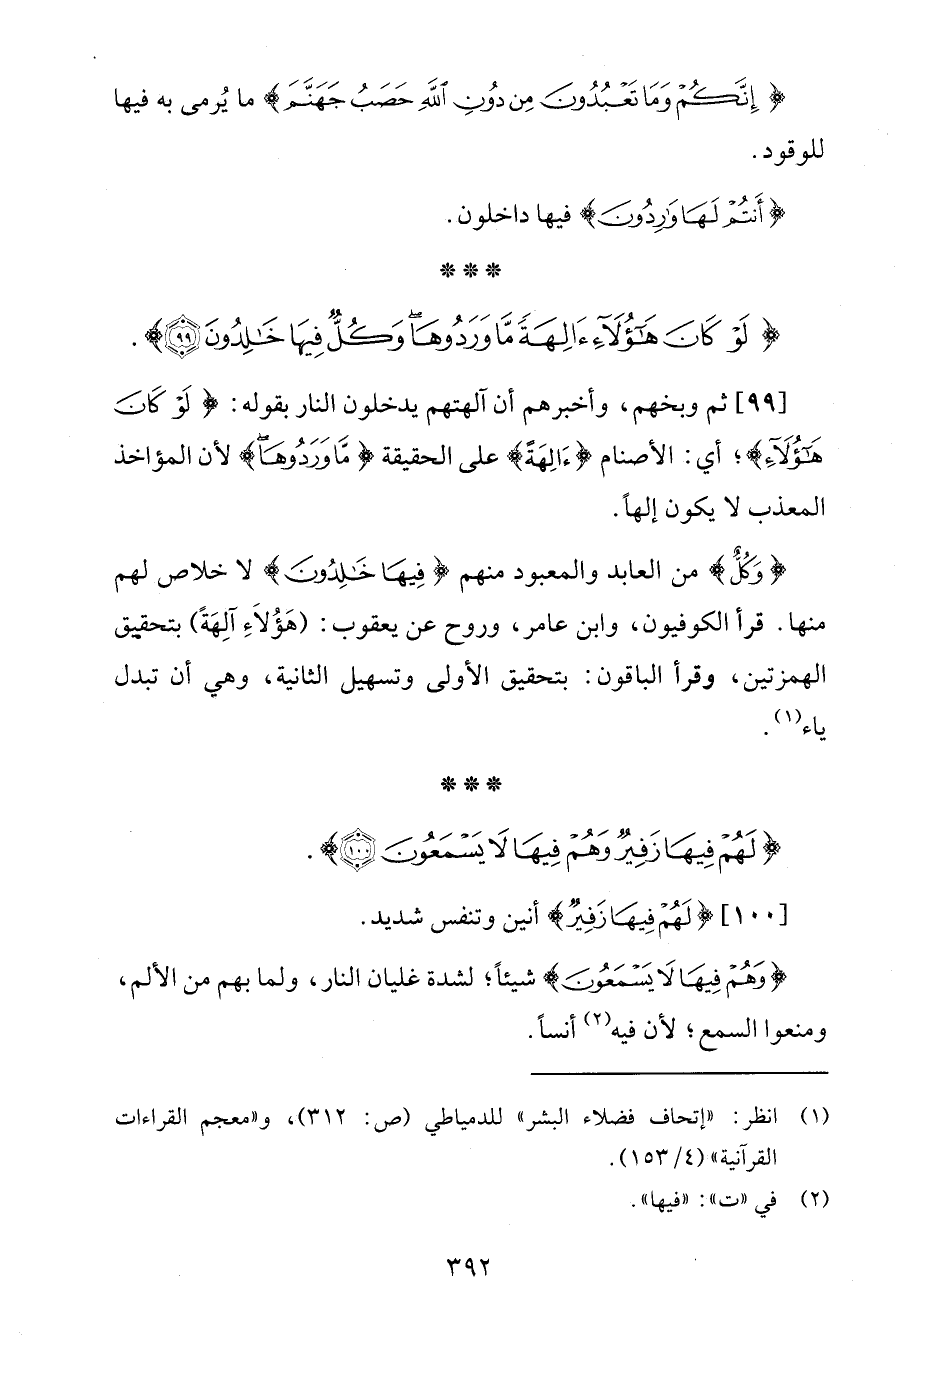 ﴿إِنَّكُمْ وَمَا تَعْبُدُونَ مِن دُونِ ٱللَّهِ حَصَبُ جَهَنَّمَ﴾ ما يُرمى به فيها
للوقود.
﴿أَنتُمْ لَهَا وَٰرِدُونَ﴾ فيها داخلون.
* * *
﴿لَوْ كَانَ هَٰٓؤُلَآءِ ءَالِهَةً مَّا وَرَدُوهَا ۖ وَكُلٌّ فِيهَا خَٰلِدُونَ ٩٩﴾.
[٩٩] ثم وبخهم، وأخبرهم أن آلهتهم يدخلون النار بقوله: ﴿لَوْ كَانَ
هَٰٓؤُلَآءِ﴾؛ أي: الأصنام ﴿ءَالِهَةً﴾ على الحقيقة ﴿مَّا وَرَدُوهَا ۖ﴾ لأن المؤاخذ
المعذب لا يكون إلهاً.
﴿وَكُلٌّ﴾ من العابد والمعبود منهم ﴿فِيهَا خَٰلِدُونَ﴾ لا خلاص لهم
منها. قرأ الكوفيون، وابن عامر، وروح عن يعقوب: (هَؤُلاَءِ آلِهَةً) بتحقيق
الهمزتين، وقرأ الباقون: بتحقيق الأولى وتسهيل الثانية، وهي أن تبدل
ياء(١).
* * *
﴿لَهُمْ فِيهَا زَفِيرٌ وَهُمْ فِيهَا لَا يَسْمَعُونَ ١٠٠﴾.
[١٠٠] ﴿لَهُمْ فِيهَا زَفِيرٌ﴾ أنين وتنفس شديد.
﴿وَهُمْ فِيهَا لَا يَسْمَعُونَ﴾ شيئاً؛ لشدة غليان النار، ولما بهم من الألم،
ومنعوا السمع؛ لأن فيه(٢) أنساً.
(١) انظر: «إتحاف فضلاء البشر» للدمياطي (ص: ٣١٢)، و«معجم القراءات
القرآنية» (٤/ ١٥٣).
(٢) في «ت»: «فيها».
٣٩٢